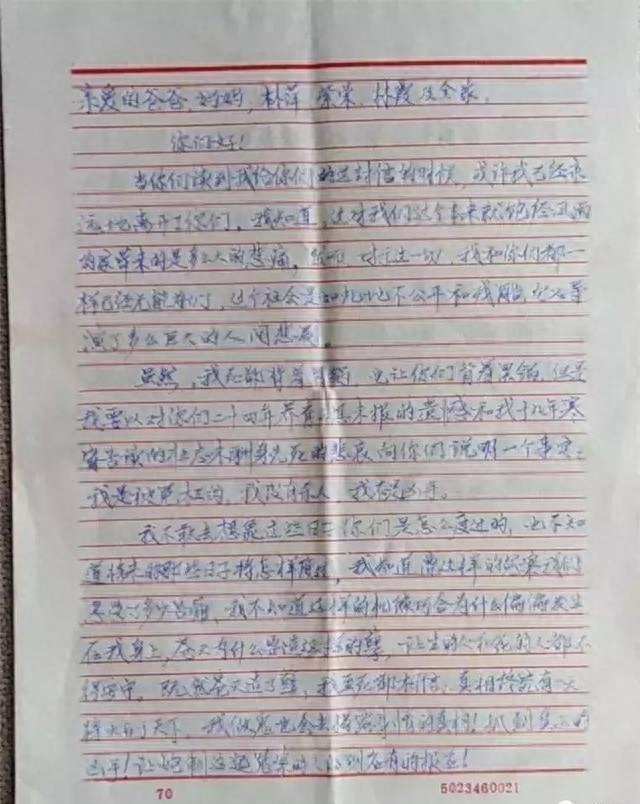 亲爱的爸爸、妈妈、林萍、繁荣、林霞及全家:
你们好!
当你们读到我给你们的这封信的时候,或许我已经永
远地离开了你们。我知道,这对我们这个本来就饱经风雨
的家带来的是多么大的悲痛,然而对于这一切,我和你们都一
样已经无能为力了,这个社会是如此地不公平和残酷,它又导
演了多么巨大的人间悲剧。
虽然,我死都背着黑锅,也让你们背着黑锅,但是
我要以对你们二十四年养育之恩未报的遗憾和我十几年寒
窗苦读的壮志未酬身先死的悲哀向你们说明一个事实:
我是被冤枉的,我没有杀人,我不是凶手。
我不敢去想最近些日子你们是怎么度过的,也不知
道将来的那些日子将怎样度过,我知道遭这样的冤案我们
忍受了多少苦痛,我不知道这样的机缘巧合为什么偏偏发生
在我身上,苍天为什么要造这样的孽,让生的人和死的人都不
得安宁。既然苍天造了孽,我至死都相信,真相终究有一天
大白于天下,我做鬼也会去搞清事情的真相!抓到真正的
凶手!让炮制这起冤案的人得到应有的报应!
70
5023460021